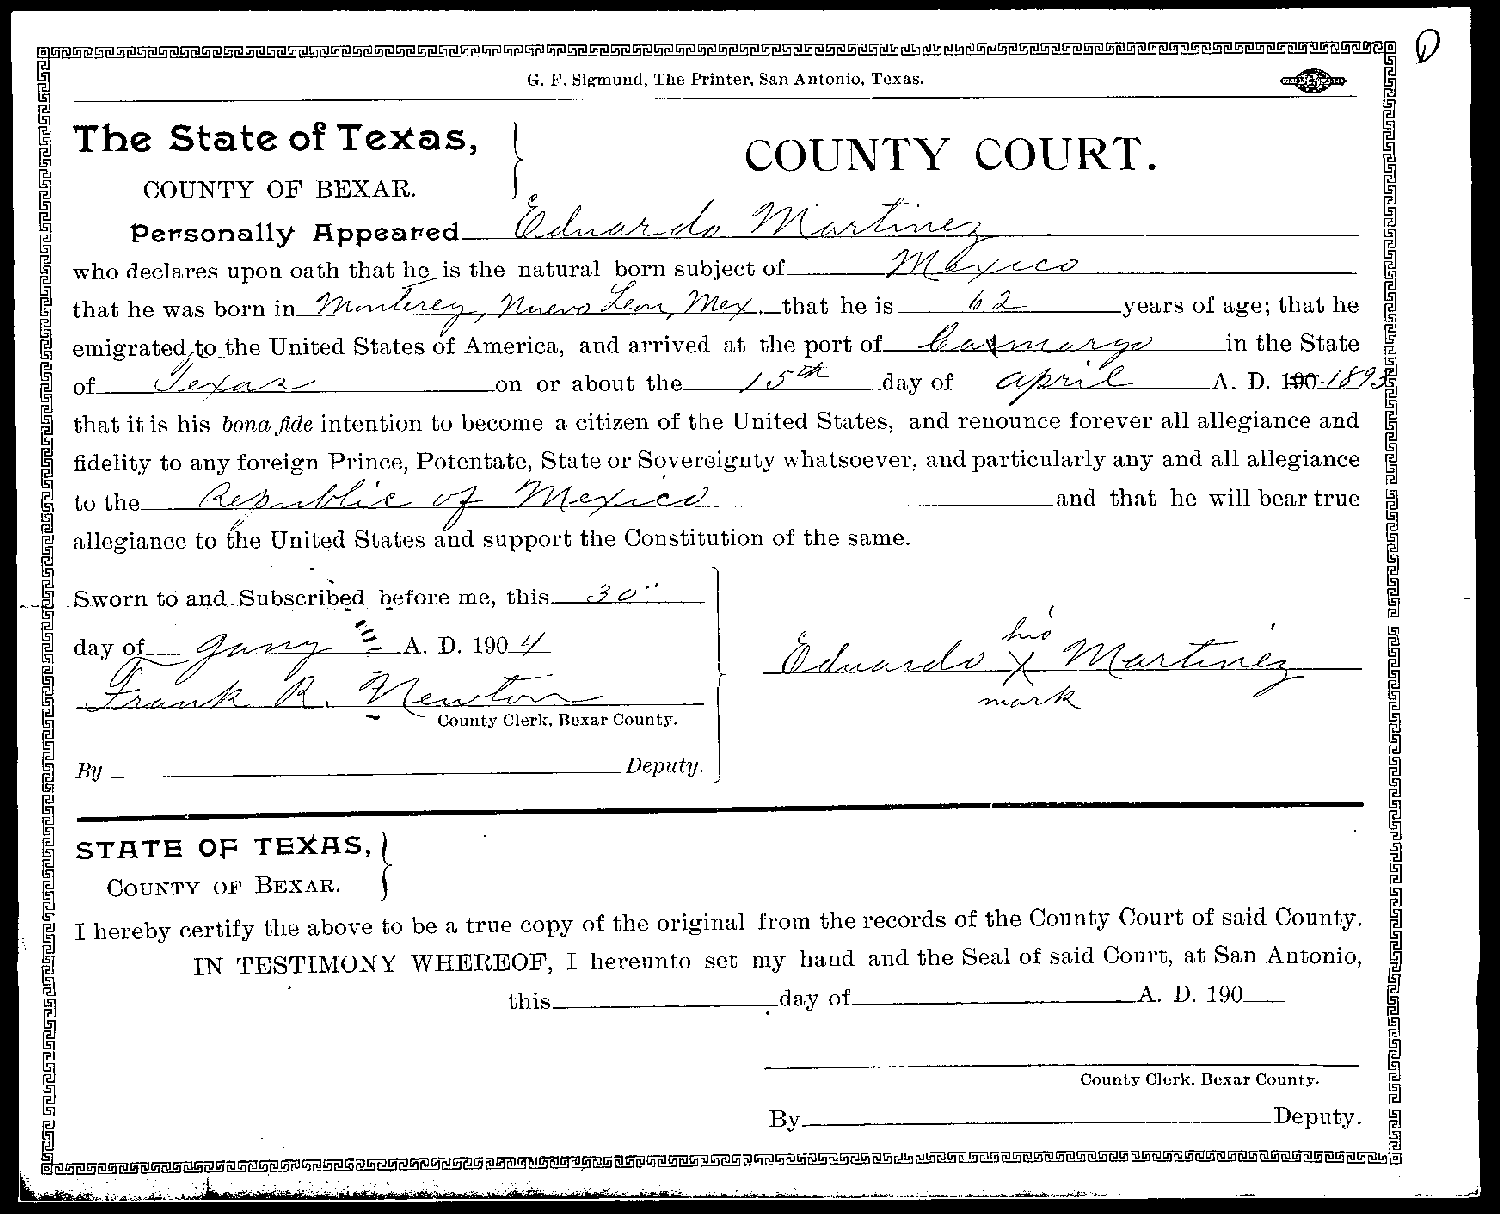 G. F. Sigmund, The Printer, San Antonio, Texas.
The State of Texas,
COUNTY OF BEXAR.
COUNTY COURT.
Personally Appeared Eduardo Martinez
who declares upon oath that he is the natural born subject of Mexico
that he was born in Monterey, Nuevo Leon, Mex. that he is 62 years of age; that he
emigrated to the United States of America, and arrived at the port of Camargo in the State
of Texas on or about the 15th day of April A. D. 190 1893
that it is his bona fide intention to become a citizen of the United States, and renounce forever all allegiance and
fidelity to any foreign Prince, Potentate, State or Sovereignty whatsoever, and particularly any and all allegiance
to the Republic of Mexico and that he will bear true
allegiance to the United States and support the Constitution of the same.
Sworn to and Subscribed before me, this 30"
day of Jany A. D. 1904
Frank R. Newton
County Clerk, Bexar County.
By Deputy.
his
Eduardo X Martinez
mark
STATE OF TEXAS,
COUNTY OF BEXAR.
I hereby certify the above to be a true copy of the original from the records of the County Court of said County.
IN TESTIMONY WHEREOF, I hereunto set my hand and the Seal of said Court, at San Antonio,
this day of A. D. 190
County Clerk. Bexar County.
By Deputy.